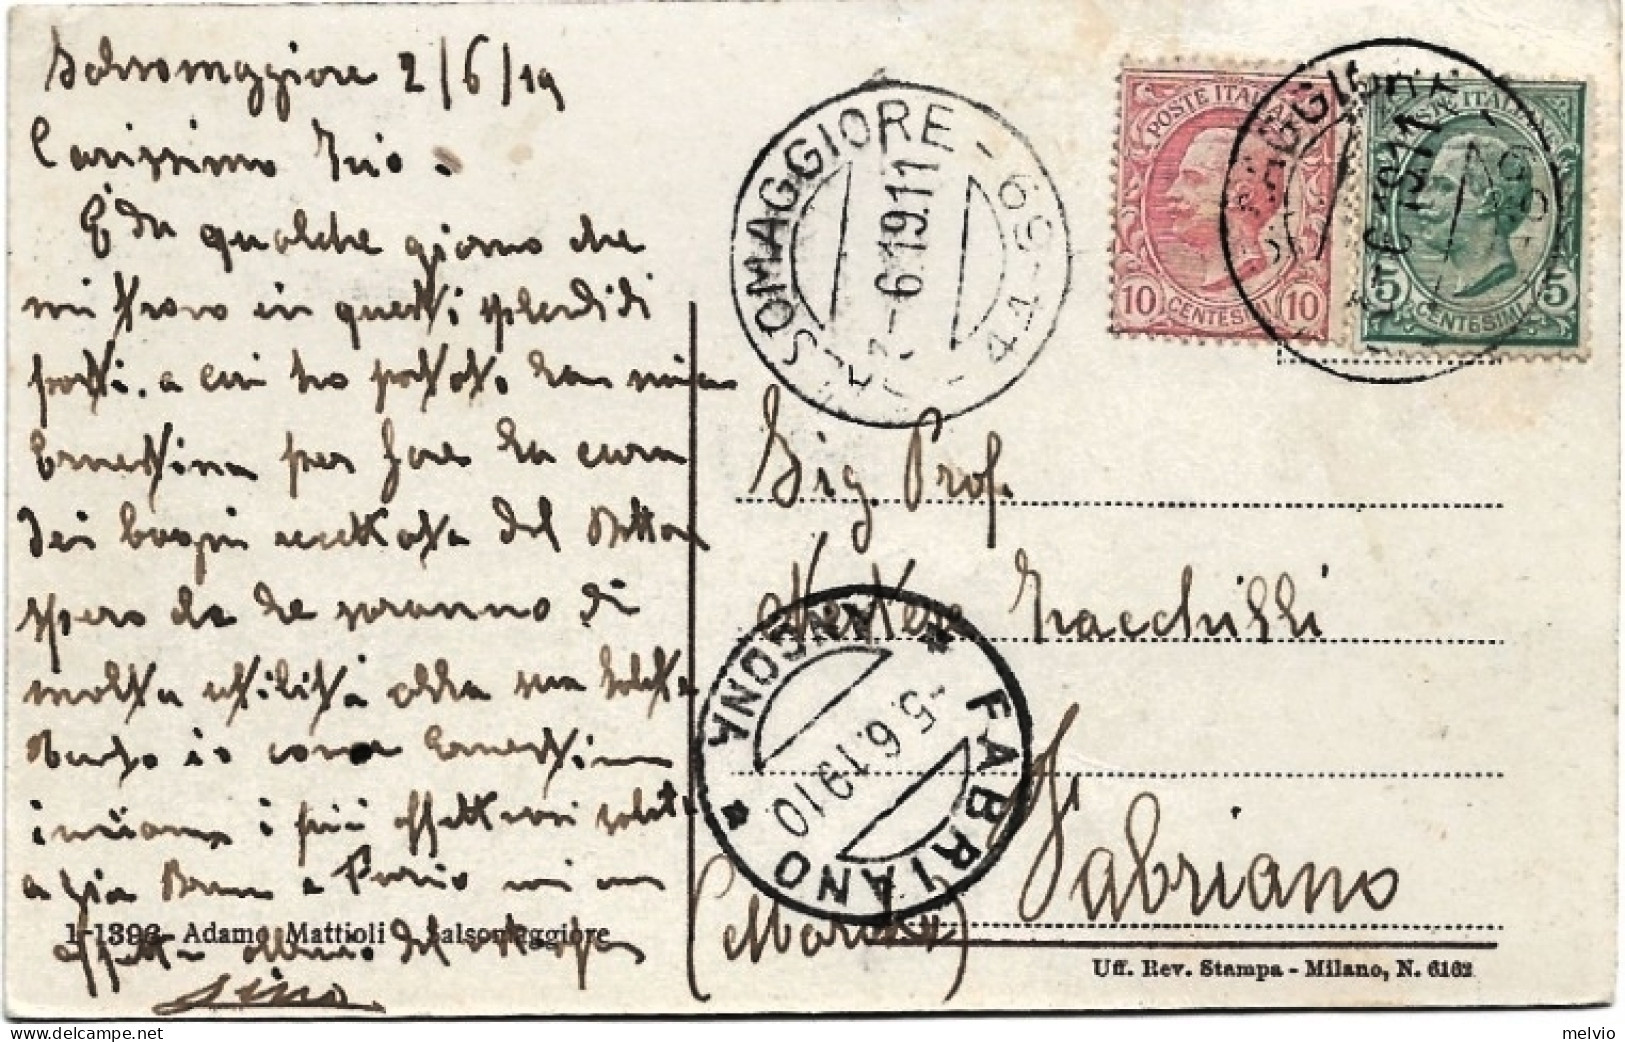 Salsomaggiore 2/6/19
Carissimo Zio.
È da qualche giorno che
mi trovo in questi splendidi
posti, a cui ho portato la mia
Ernestina per fare la cura
dei bagni del Dottor
spero che le saranno di
molta utilità alla sua salute
io come Ernestina
inviamo i più affettuosi saluti
a zia e mi un
affett. del
Gino
1-1393 Adamo Mattioli Salsomaggiore
SALSOMAGGIORE
-6.19.11
POSTE ITALIANE
10 CENTESIMI 10
POSTE ITALIANE
5 CENTESIMI 5
Sig. Prof.
Zacchilli
Fabriano
(Marche)
FABRIANO
ANCONA
-5.6.19 10
Uff. Rev. Stampa - Milano, N. 6162
melvio